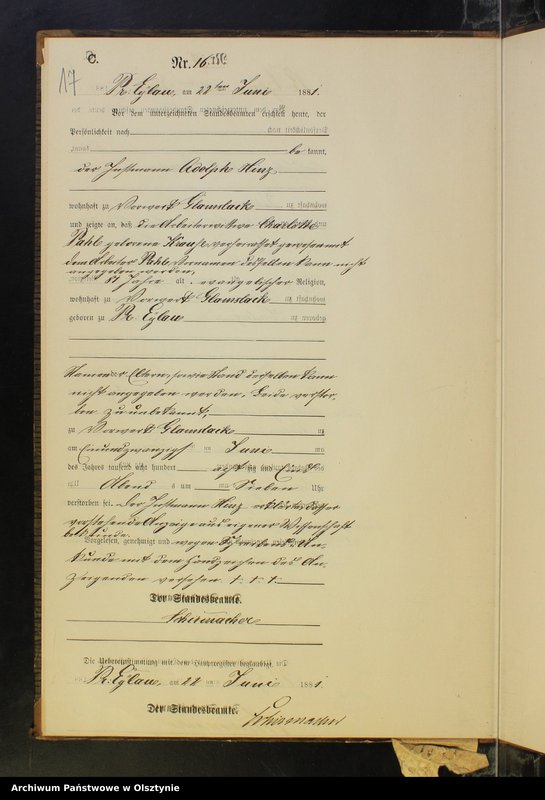 C.
17
Nr. 16.
Pr: Eylau, am 22ten Juni 1881.
Vor dem unterzeichneten Standesbeamten erschien heute, der
Persönlichkeit nach
be kannt,
der Instmann Adolph Hinz
wohnhaft zu Vorwerk Glamslack
und zeigte an, daß die Arbeiterwittwe Charlotte
Pahl geborene Krause, verheirathet gewesen mit
dem Arbeiter Pahl, Vornamen desselben kann nicht
angegeben werden,
Jahre alt, evangelischer Religion,
wohnhaft zu Vorwerk Glamslack
geboren zu Pr. Eylau
Namen der Eltern, sowie Stand derselben kann
nicht angegeben werden, Beide verstor-
ben zu unbekannt,
zu Vorwerk Glamslack
am Einundzwanzigsten Juni
des Jahres tausend acht hundert achtzig und Eins
Abends um Sieben Uhr
verstorben sei. Der Instmann Hinz erklärte, daß er
vorstehende Anzeige aus eigener Wissenschaft
bekunde.
Vorgelesen, genehmigt und wegen Schreibens Un-
kunde mit dem Handzeichen des An-
zeigenden versehen. † † †
Der Standesbeamte.
Schirmacher
Die Uebereinstimmung mit dem Hauptregister beglaubigt.
Pr: Eylau, am 22 Juni 1881.
Der Standesbeamte.
Schirmacher
Archiwum Państwowe w Olsztynie